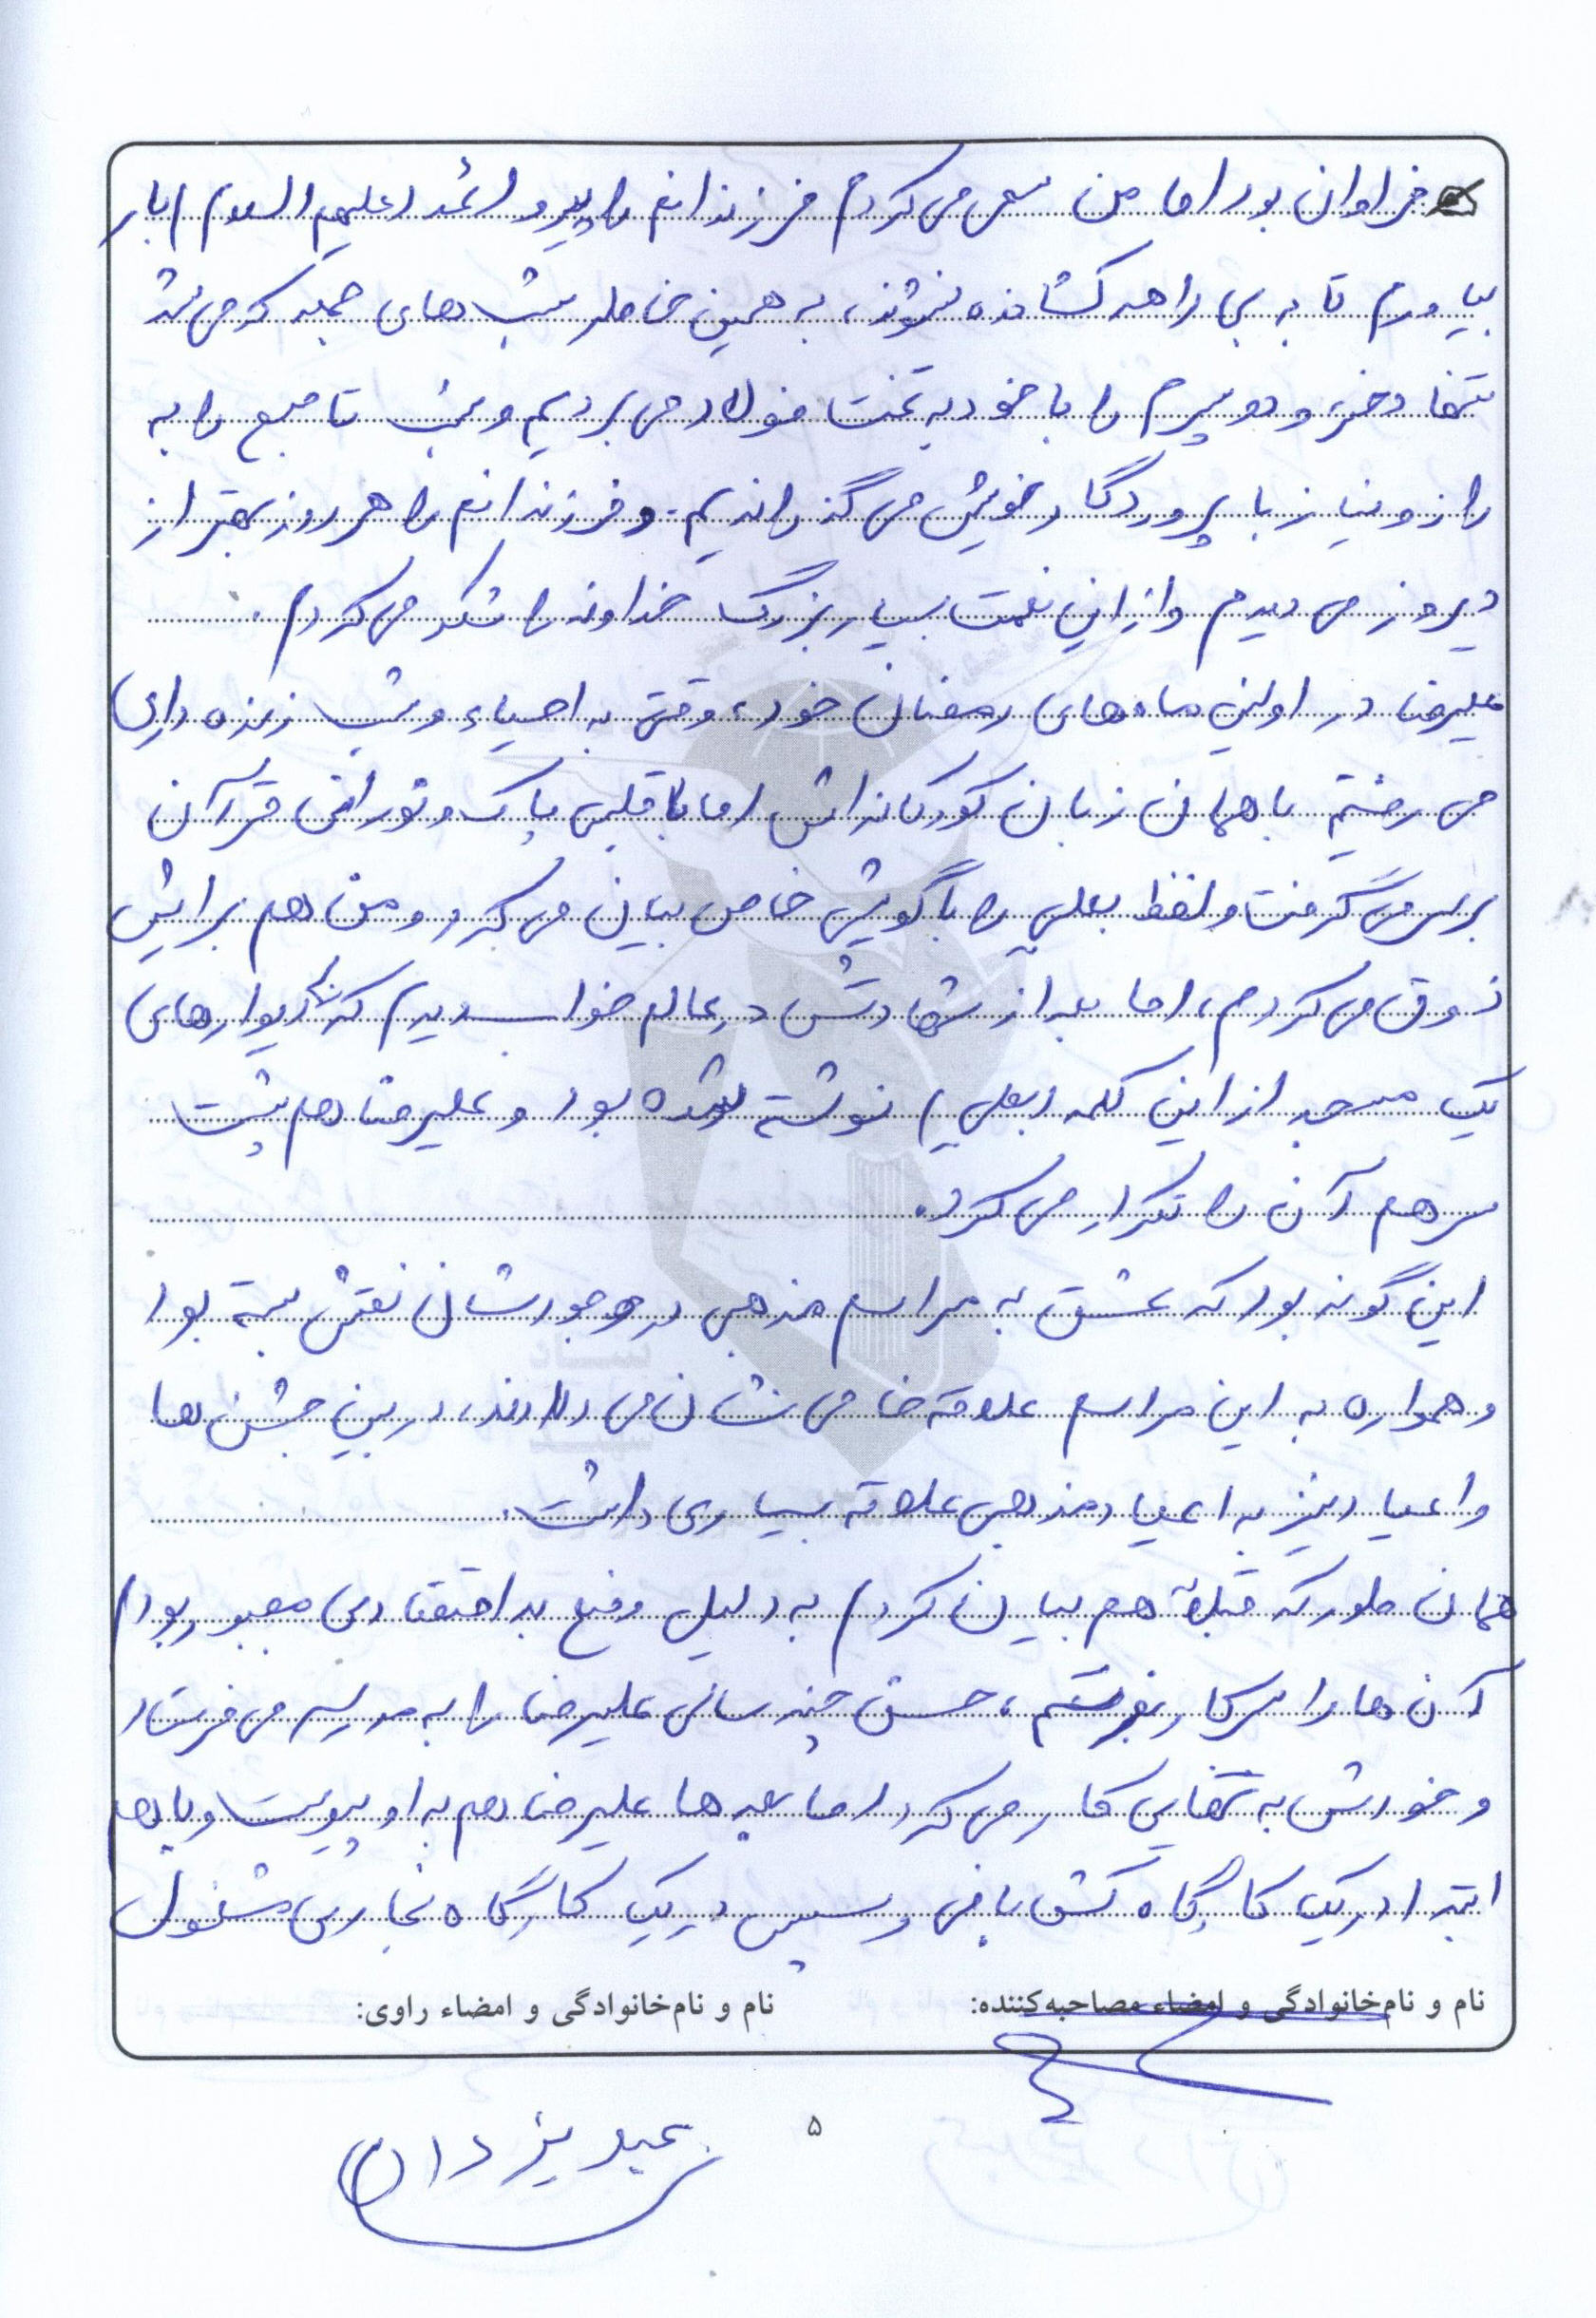 فراوان بود اما من سعی می‌کردم فرزندانم را پیرو ائمه (علیهم السلام) بار
بیاورم تا به بی راهه کشانده نشوند، به همین خاطر شب‌های جمعه که می‌شد
تنها دختر و دو پسرم را با خود به تخت فولاد می‌بردیم و شب تا صبح را به
راز و نیاز با پروردگار خویش می‌گذراندیم. و فرزندانم را هر روز بهتر از
دیروز می دیدم و از این نعمت بسیار بزرگ خداوند را شکر می‌کردم.
علیرضا در اولین ماه‌های رمضان خود، وقتی به احیاء و شب زنده داری
می رفتیم با همان زبان کودکانه‌اش اما با قلبی پاک و نورانی قرآن
بر سر می‌گرفت و لفظ بعلیٍ را با گویش خاص بیان می‌کرد و من هم برایش
ذوق می‌کردم، اما بعد از شهادتش در عالم خواب دیدم که دیوارهای
یک مسجد از این کلمه (بعلیٍ) نوشته شده بود و علیرضا هم پشت
سر هم آن را تکرار می‌کرد.
این گونه بود که عشق به مراسم مذهبی در وجودشان نقش بسته بود
و همواره به این مراسم علاقه خاصی نشان می دادند، در بین جشن ها
و اعیاد نیز به اعیاد مذهبی علاقه بسیاری داشت.
همان طور که قبلاً هم بیان کردم به دلیل وضع بد اقتصادی مجبور بودم
آن ها را سر کار بفرستم، حسن چند سالی علیرضا را به مدرسه می فرستاد
و خودش به تنهایی کار می‌کرد اما بعدها علیرضا هم به او پیوست و با هم
ابتدا در یک کارگاه کش بافی و سپس در یک کارگاه نجاری مشغول
نام و نام‌خانوادگی و امضاء مصاحبه‌کننده:
نام و نام‌خانوادگی و امضاء راوی:
۵